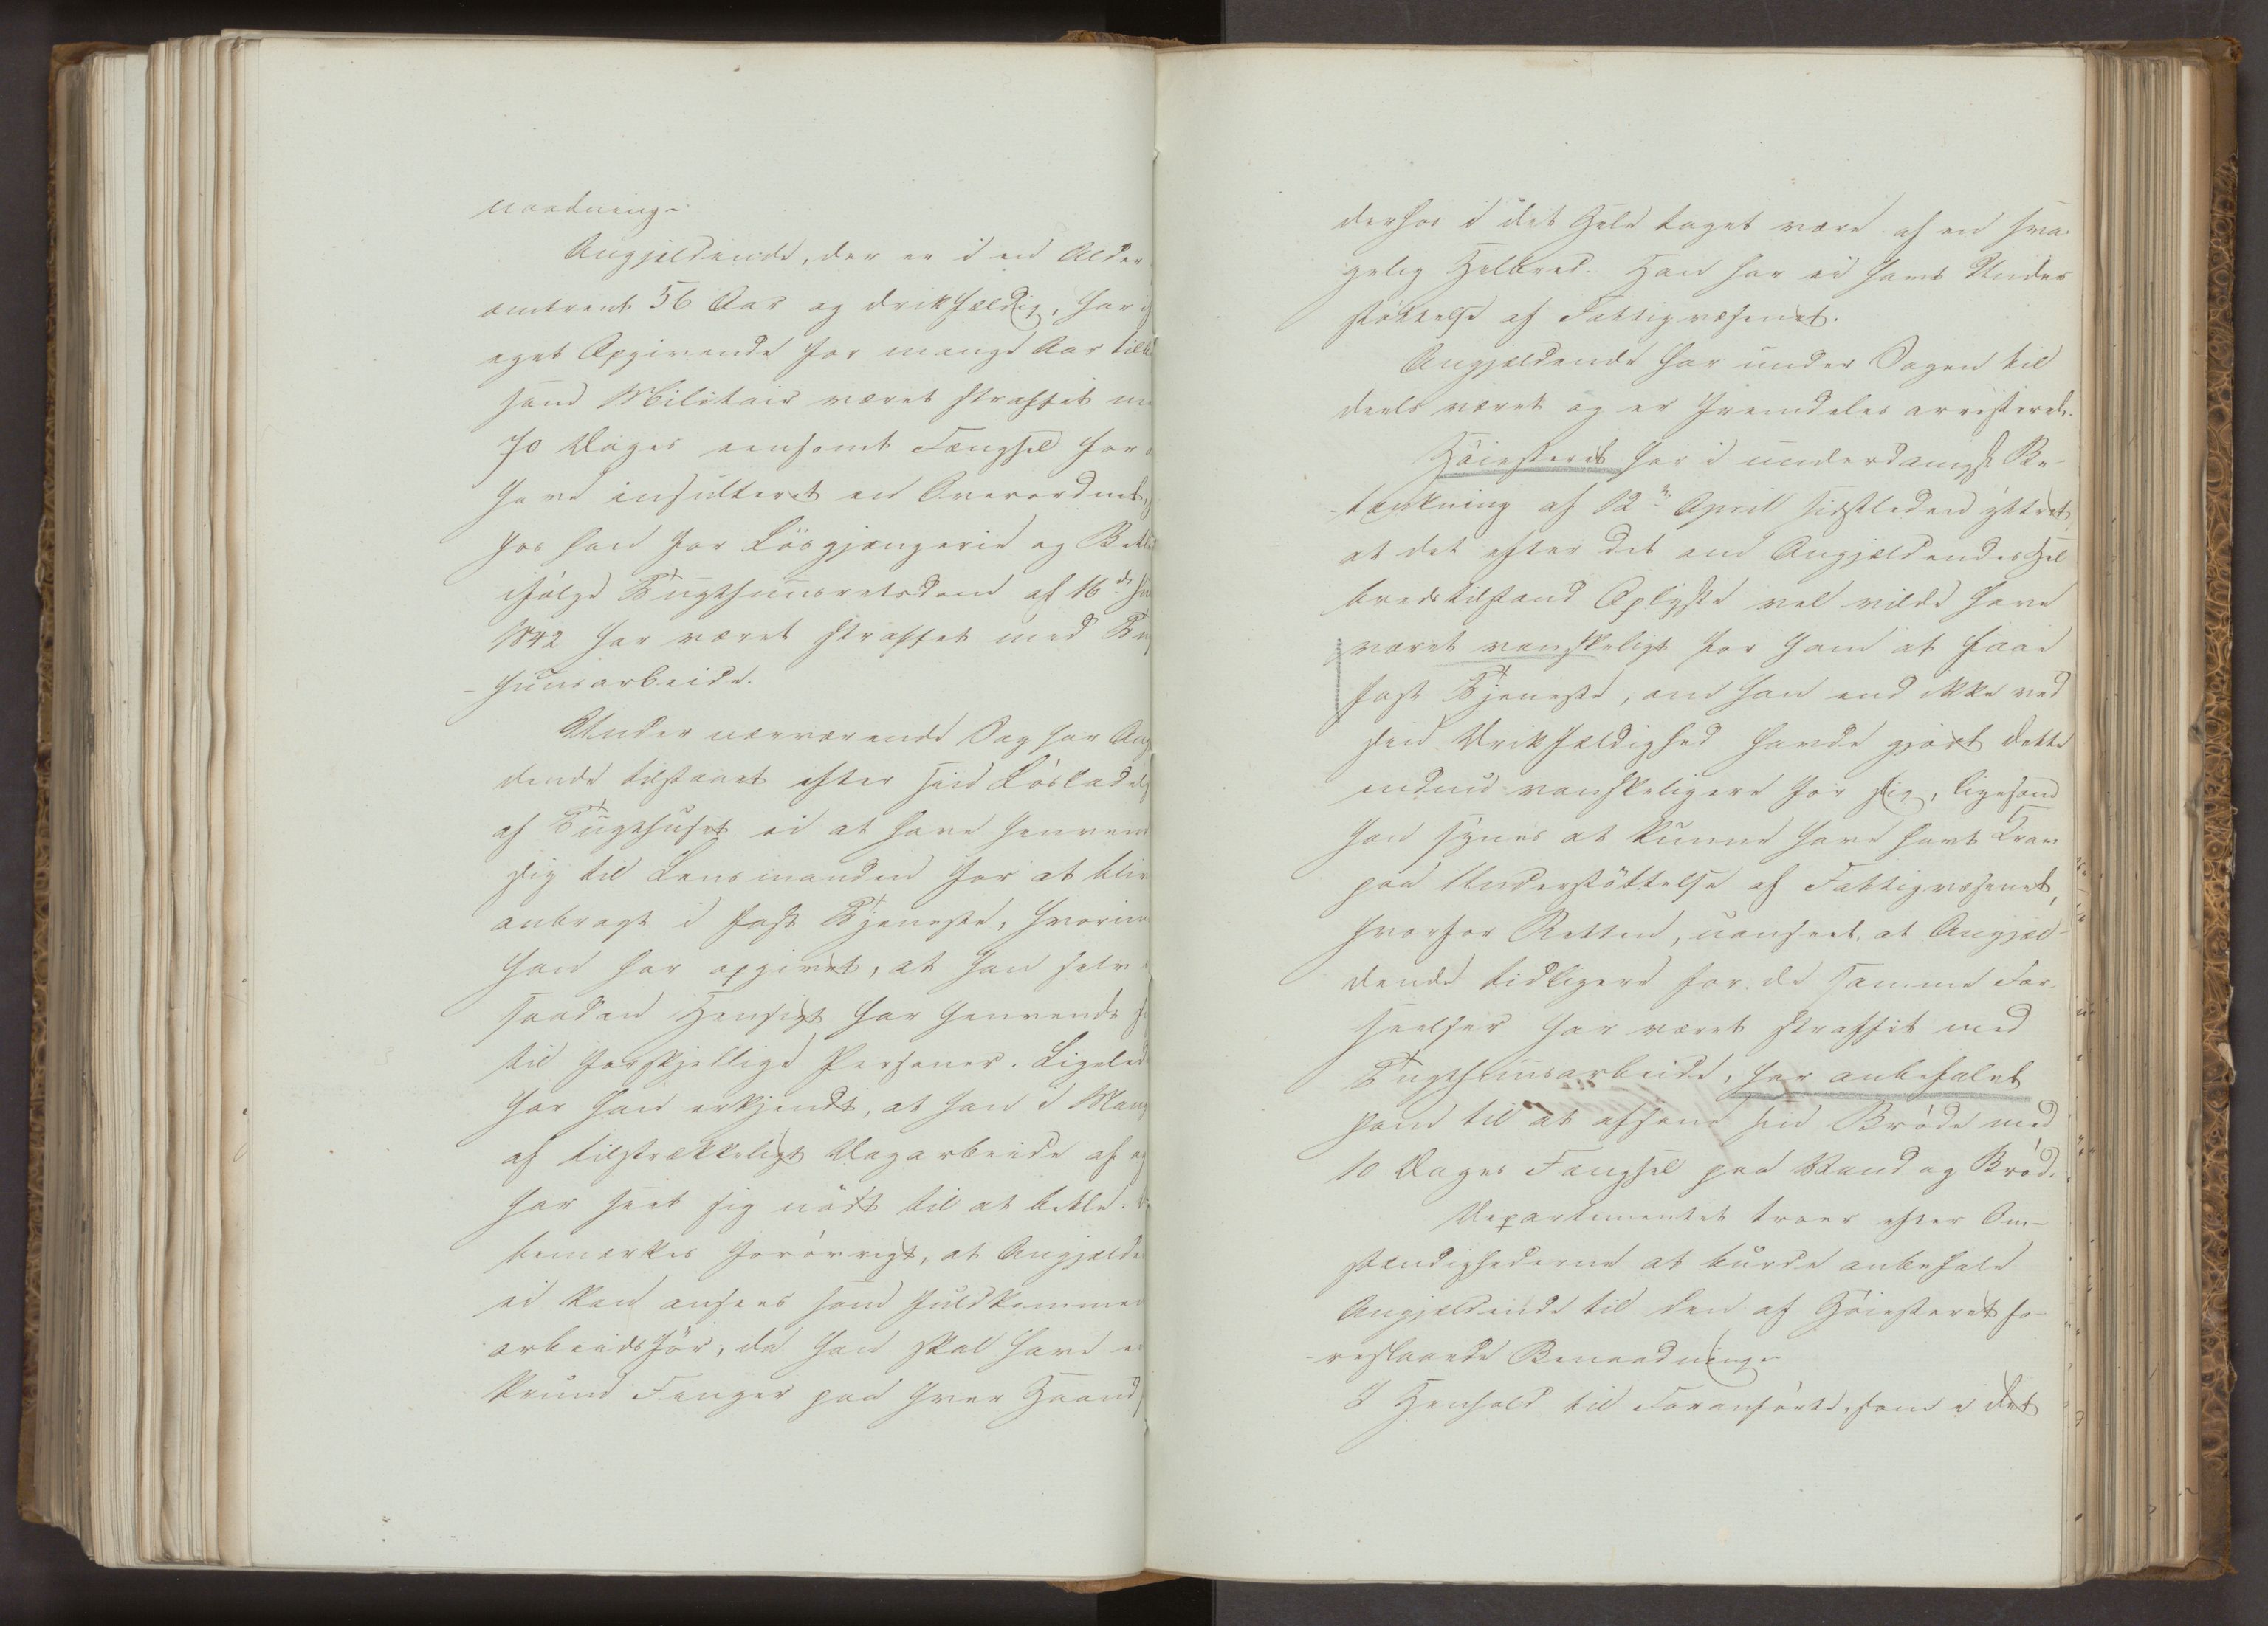 naadning.
Angjeldende, der er i en Alder
omtrent 56 Aar og drikfældig, har
eget Opgivende for mange Aar til
som Militair været straffet
70 Dages eensomt Fængsel for
have insulteret en Overordnet,
hos han for Løsgjængerie og
ifølge Tugthuusretsdom af 16de
1842 har været straffet med
huusarbeide.
Under nærværende Sag har Ang
dende tilstaaet efter sin Løsladels
af Tugthuset ei at have henven
sig til Lensmanden for at bliv
anbragt i fast Tjeneste, hvorim
han har opgivet, at han selv
saadan Hensigt har henvendt
til forskjellige Personer. Ligeled
har han erkjendt, at han i Mang
af tilstrækkeligt Dagarbeide af
har seet sig nødt til at betle.
bemærkes forøvrigt, at Angjælde
ei kan ansees som fuldkommen
arbeidsfør, da han skal have
krum Finger paa hver Haand,
derhos i det Hele taget være af en sva-
gelig Helbred. Han har ei havt Under
støttelse af Fattigvæsenet.
Angjældende har under Sagen til
deels været og er fremdeles arresteret.
Høiesteret har i underdanigst Be-
tænkning af 12te April sidstleden yttret,
at det efter det om Angjældendes Hel
bredstilstand Oplyste vel vilde have
været vanskeligt for ham at faae
fast Tjeneste, om han end ikke ved
sin Drikfældighed havde gjort dette
endnu vanskeligere for sig, ligesom
han synes at kunne have havt Krav
paa Understøttelse af Fattigvæsenet,
hvorfor Retten, uanseet, at Angjæl-
dende tidligere for de samme For-
seelser har været straffet med
Tugthuusarbeide, har anbefalet
ham til at afsone sin Brøde med
10 Dages Fængsel paa Vand og Brød.
Departementet troer efter Om-
stændighederne at burde anbefale
Angjældende til den af Høiesteret fo-
reslaaede Benaadning.
I Henhold til Foranførte, som i det